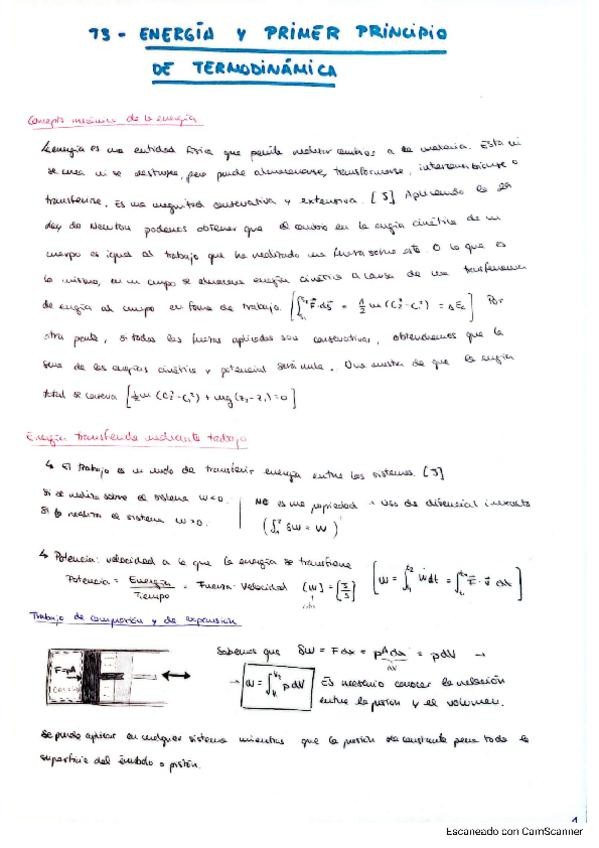 T3 - ENERGÍA Y PRIMER PRINCIPIO
DE TERMODINÁMICA
Concepto mecánico de la energía
La energía es una entidad física que permite realizar cambios a la materia. Esta ni
se crea ni se destruye, pero puede almacenarse, transformarse, intercambiarse o
transferirse. Es una magnitud conservativa y extensiva. [J] Aplicando la 2ª
ley de Newton podemos obtener que el cambio en la engía cinética de un
cuerpo es igual al trabajo que ha realizado una fuerza sobre este. O lo que es
lo mismo, en un cuerpo se almacena energía cinética a causa de una transferencia
de engía al cuerpo en forma de trabajo. [∫ F·ds = 1/2 m (C₂² - C₁²) = ΔEc] Por
otra parte, si todas las fuerzas aplicadas son conservativas, obtendremos que la
suma de las engías cinética y potencial será nula. Una muestra de que la engía
total se conserva [1/2 m (C₂² - C₁²) + mg (z₂ - z₁) = 0]
Energía transferida mediante trabajo
↳ El trabajo es un modo de transferir energía entre los sistemas. [J]
Si se realiza sobre el sistema W<0. NO es una propiedad → uso de diferencial inexacto
Si lo realiza el sistema W>0. (∫₁² δW = W)
↳ Potencia: velocidad a la que la energía se transfiere
Potencia = Energía / Tiempo = Fuerza · Velocidad [W] = [J/s] [W = ∫ Ẇ dt = ∫ F · v dt]
Trabajo de compresión y de expansión
F=pA
Sabemos que δW = F dx = pA dx = p dV →
dV
→ W = ∫ p dV Es necesario conocer la relación
entre la presión y el volumen.
Se puede aplicar en cualquier sistema mientras que la presión sea constante para toda la
superficie del émbolo o pistón.
1
Escaneado con CamScanner